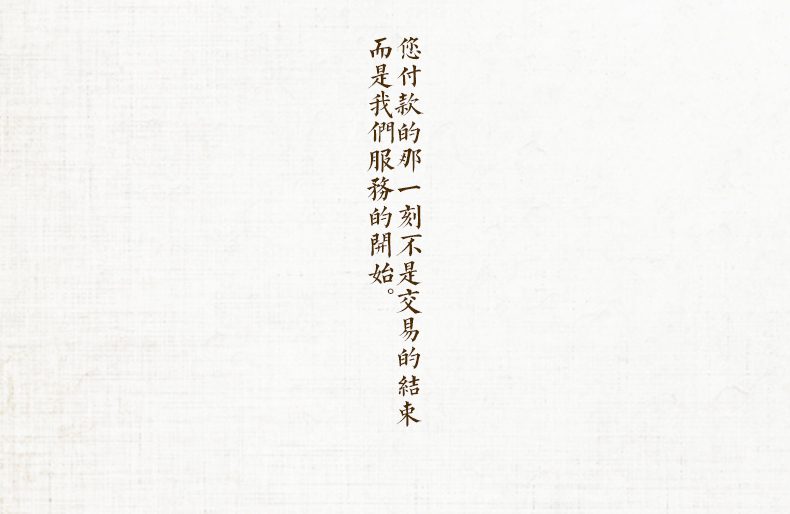 您付款的那一刻不是交易的結束
而是我們服務的開始。